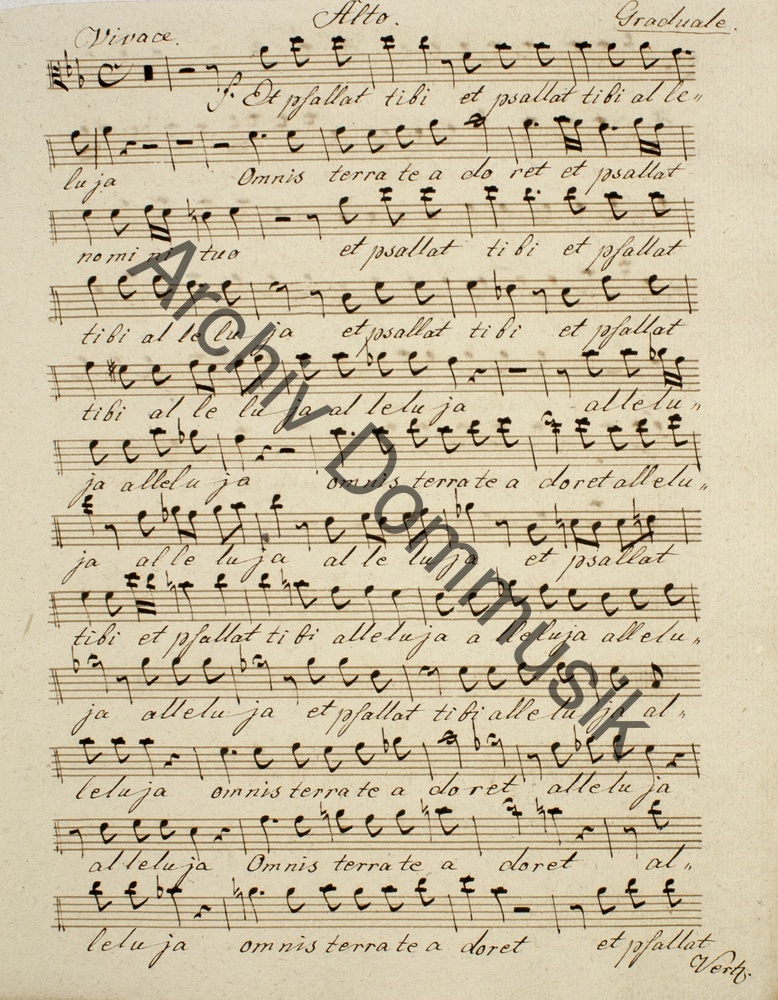 Alto.
Graduale.
Vivace.
f. Et psallat tibi et psallat tibi al le„
luja Omnis terra te a do ret et psallat
nomini tuo et psallat tibi et psallat
tibi al le lu ja et psallat tibi et psallat
tibi al le lu ja al lelu ja allelu„
ja allelu ja omnis terra te a doret allelu„
ja al le lu ja al le lu ja et psallat
tibi et psallat tibi alleluja a lleluja allelu„
ja allelu ja et psallat tibi alle lu ja al„
leluja omnis terra te a do ret allelu ja
al lelu ja Omnis terra te a doret al„
lelu ja omnis terra te a doret et psallat
Archiv Dommusik